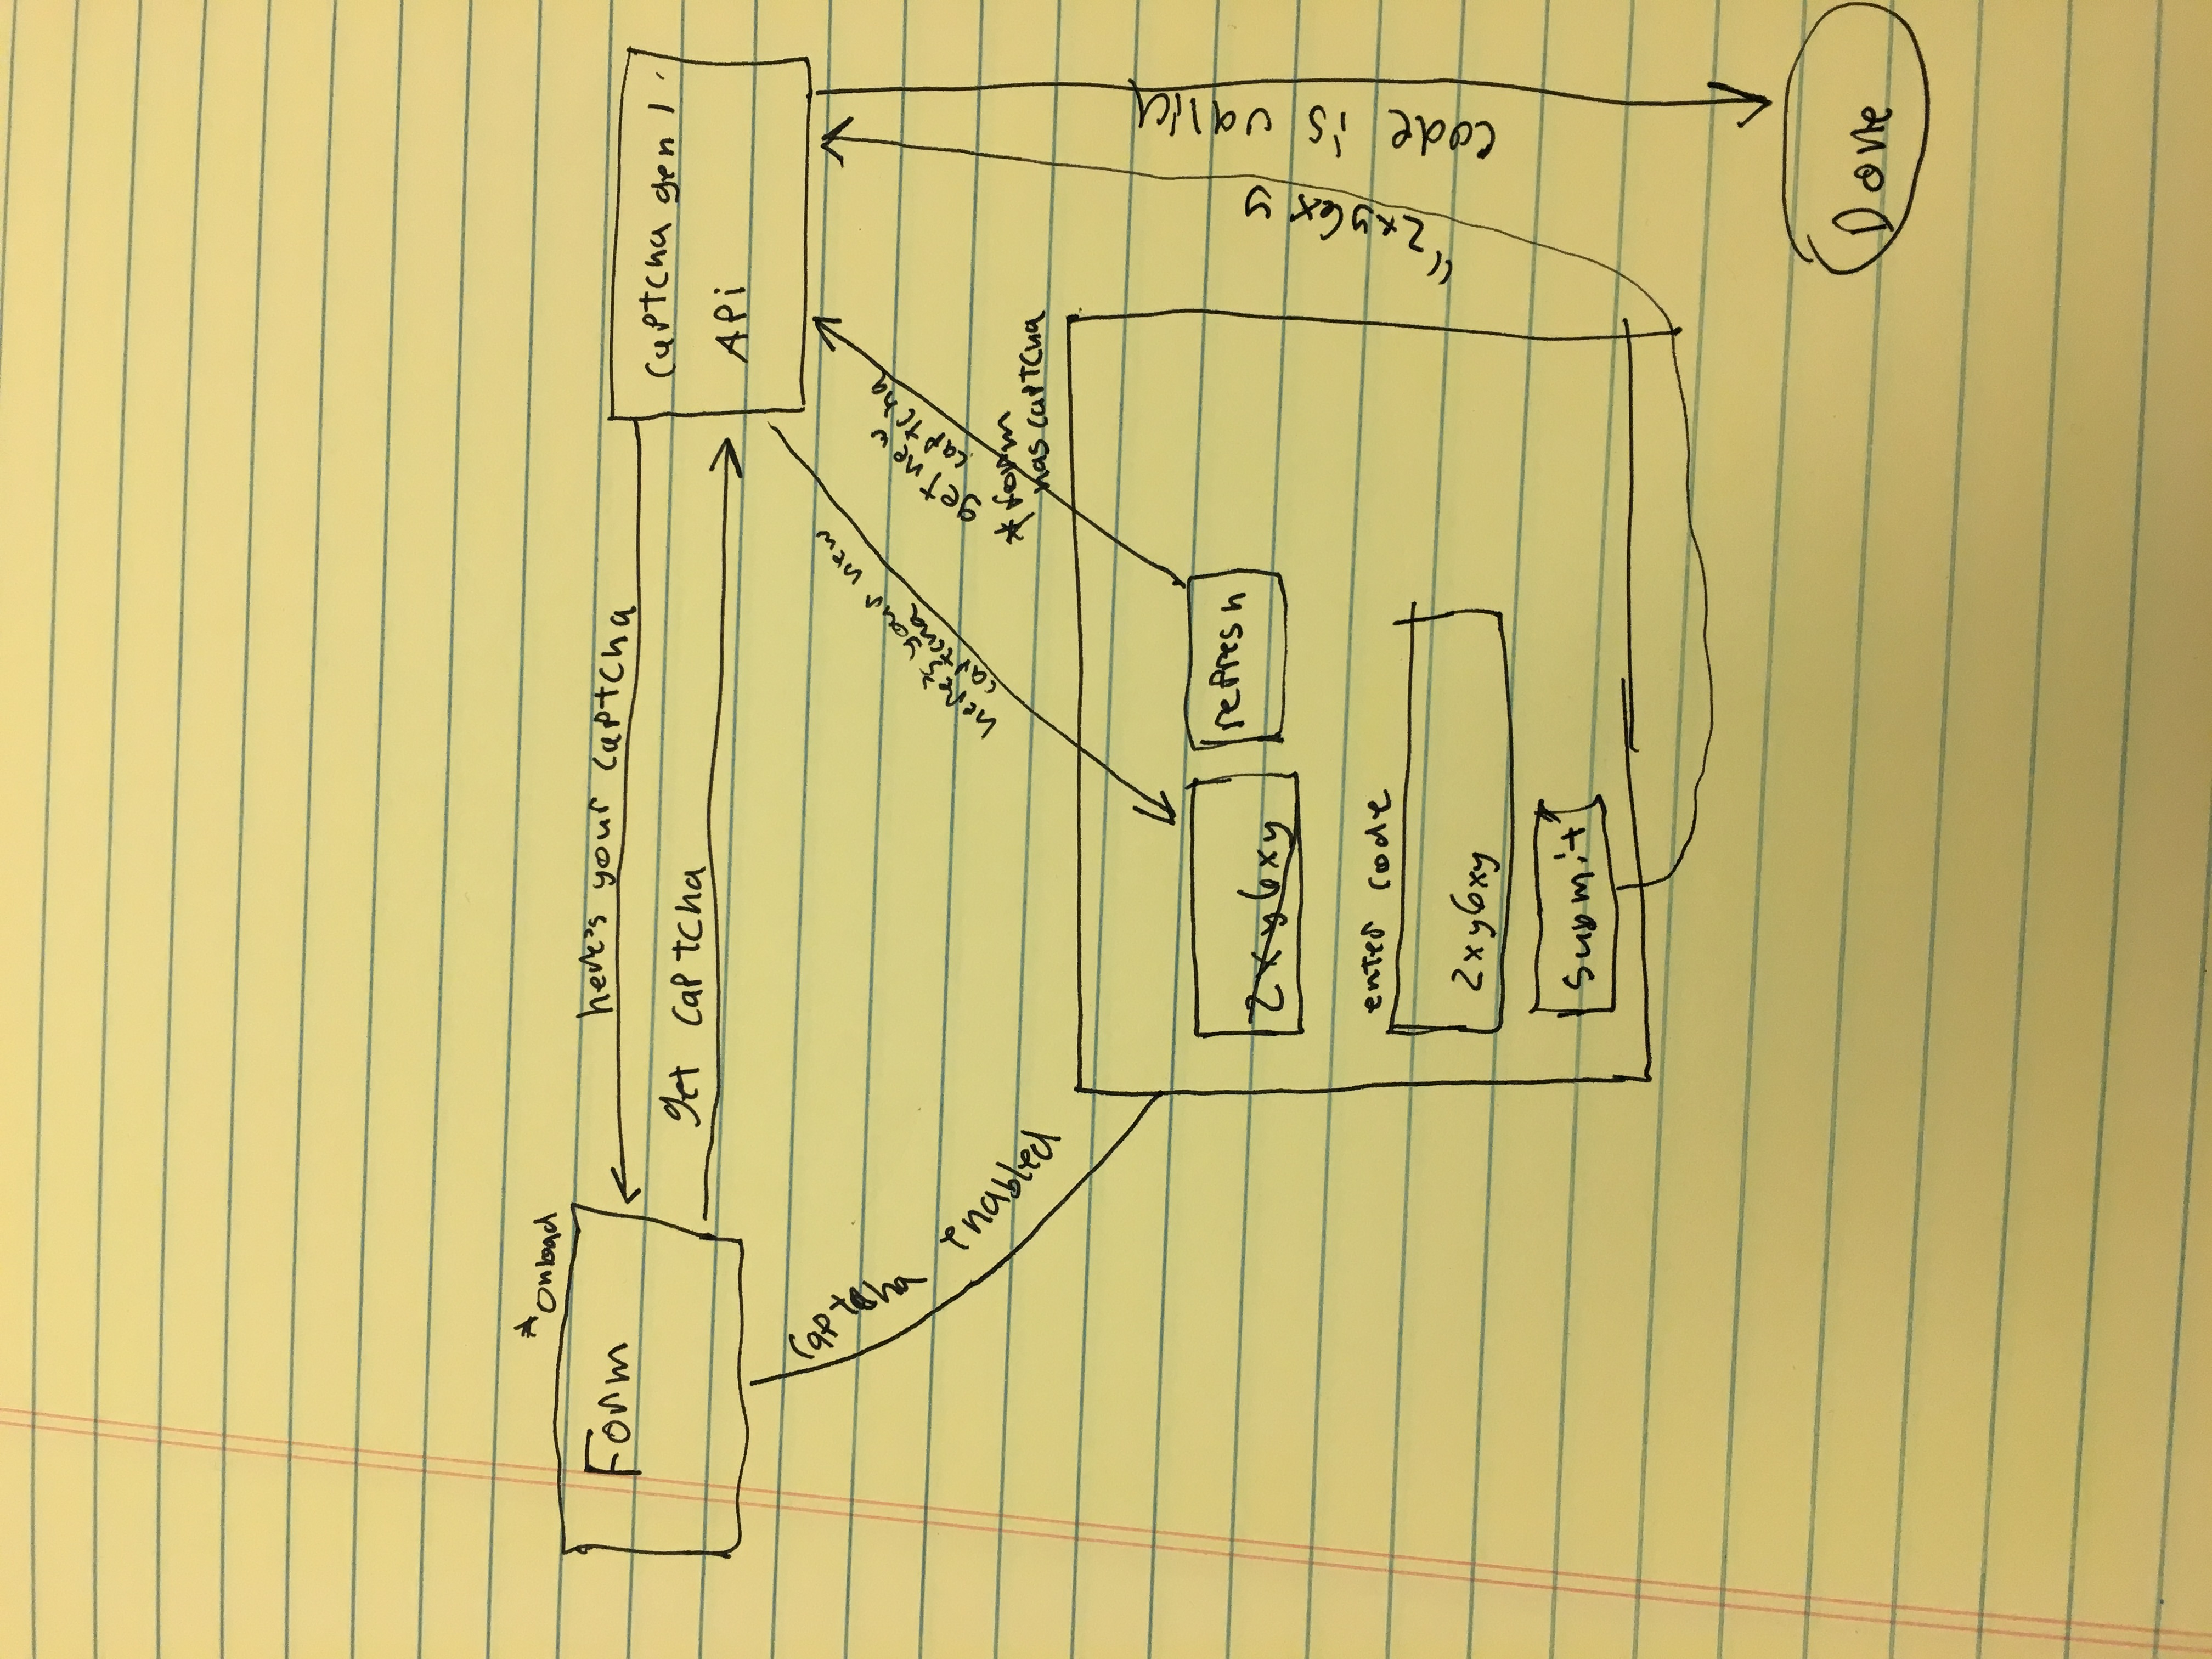 *onload
Form
here's your captcha
get captcha
captcha gen 1
API
captcha enabled
here's your new
captcha
get new
captcha
*form
has captcha
2xy6xy
refresh
enter code
2xy6xy
submit
"2xy6xy
code is valid
Done